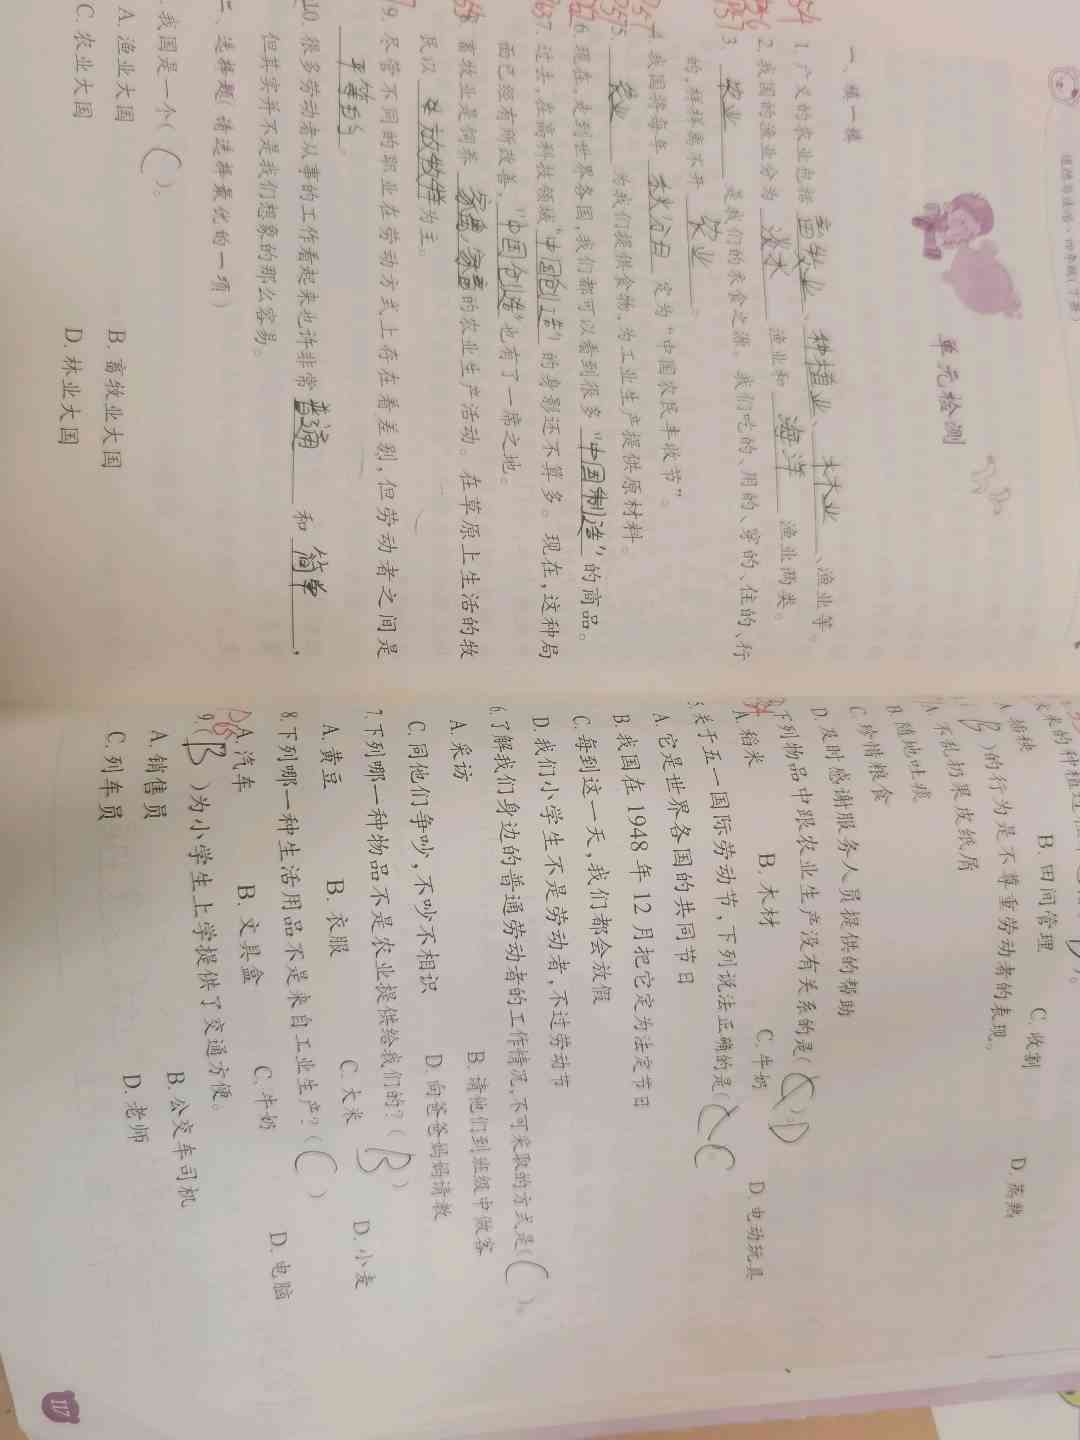 道德与法治·四年级(下册)
单元检测
一、填一填
1. 广义的农业包括 畜牧业、种植业、林业、渔业等。
2. 我国的渔业分为 淡水 渔业和 海洋 渔业两类。
3. 农业 是我们的衣食之源。我们吃的、用的、穿的、住的、行
的,样样离不开 农业 。
4. 我国将每年 秋分日 定为“中国农民丰收节”。
5. 农业 为我们提供食物,为工业生产提供原材料。
6. 现在,走到世界各国,我们都可以看到很多“中国制造”的商品。
7. 过去,在高科技领域“中国创造”的身影还不算多。现在,这种局
面已经有所改善,“中国创造”也有了一席之地。
8. 畜牧业是饲养 家畜,家禽 的农业生产活动。在草原上生活的牧
民以 放牧 为主。
9. 尽管不同的职业在劳动方式上存在着差别,但劳动者之间是
平等的 。
10. 很多劳动者从事的工作看起来也许非常 普通 和 简单 ,
但其实并不是我们想象的那么容易。
二、选择题(请选择最优的一项)
我国是一个( C )。
A. 渔业大国 B. 畜牧业大国
C. 农业大国 D. 林业大国
A. 插秧 B. 田间管理 C. 收割 D. 蒸熟
( B )的行为是不尊重劳动者的表现。
A. 不乱扔果皮纸屑
B. 随地吐痰
C. 珍惜粮食
D. 及时感谢服务人员提供的帮助
下列物品中跟农业生产没有关系的是( D
A. 稻米 B. 木材 C. 牛奶 D. 电动玩具
5. 关于五一国际劳动节,下列说法正确的是( C
A. 它是世界各国的共同节日
B. 我国在1948年12月把它定为法定节日
C. 每到这一天,我们都会放假
D. 我们小学生不是劳动者,不过劳动节
6. 了解我们身边的普通劳动者的工作情况,不可采取的方式是( C )。
A. 采访 B. 请他们到班级中做客
C. 同他们争吵,不吵不相识 D. 向爸爸妈妈请教
7. 下列哪一种物品不是农业提供给我们的?( B )
A. 黄豆 B. 衣服 C. 大米 D. 小麦
8. 下列哪一种生活用品不是来自工业生产?( C )
A. 汽车 B. 文具盒 C. 牛奶 D. 电脑
9. ( B )为小学生上学提供了交通方便。
A. 销售员 B. 公交车司机
C. 列车员 D. 老师
117